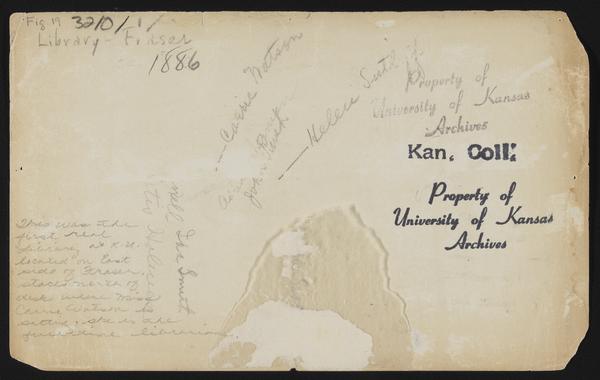 Fig 19 32/0/1/
Library - Fraser
1886
Carrie Watson
Helen Sutliff
John
Property of
University of Kansas
Archives
Kan. Coll.
Property of
University of Kansas
Archives
Smith
Helen
This was the
first real
library at K.U.
located on East
side of Fraser.
stacks north of
desk where Miss
Carrie Watson is
sitting. She is the
librarian.